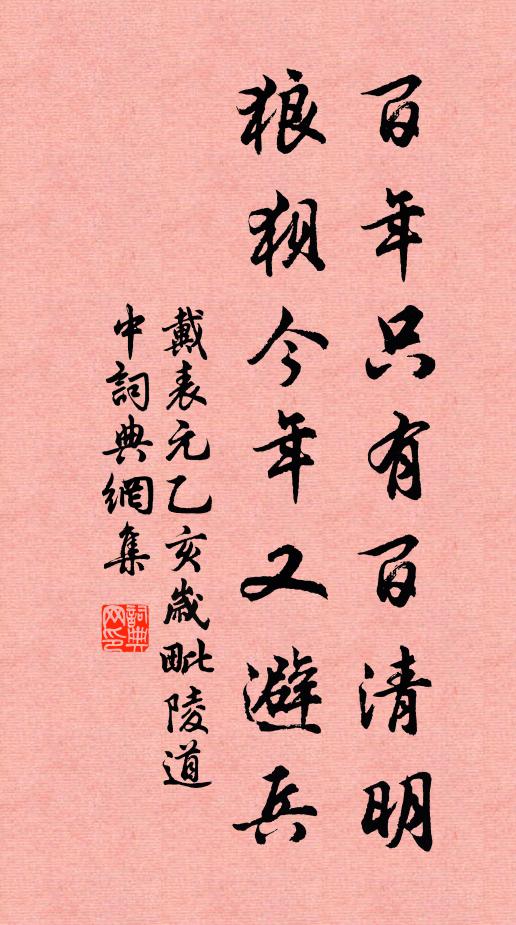 百年只有百清明
狼狽今年又避兵
戴表元乙亥歲毗陵道
中詞典網集
詞典网印